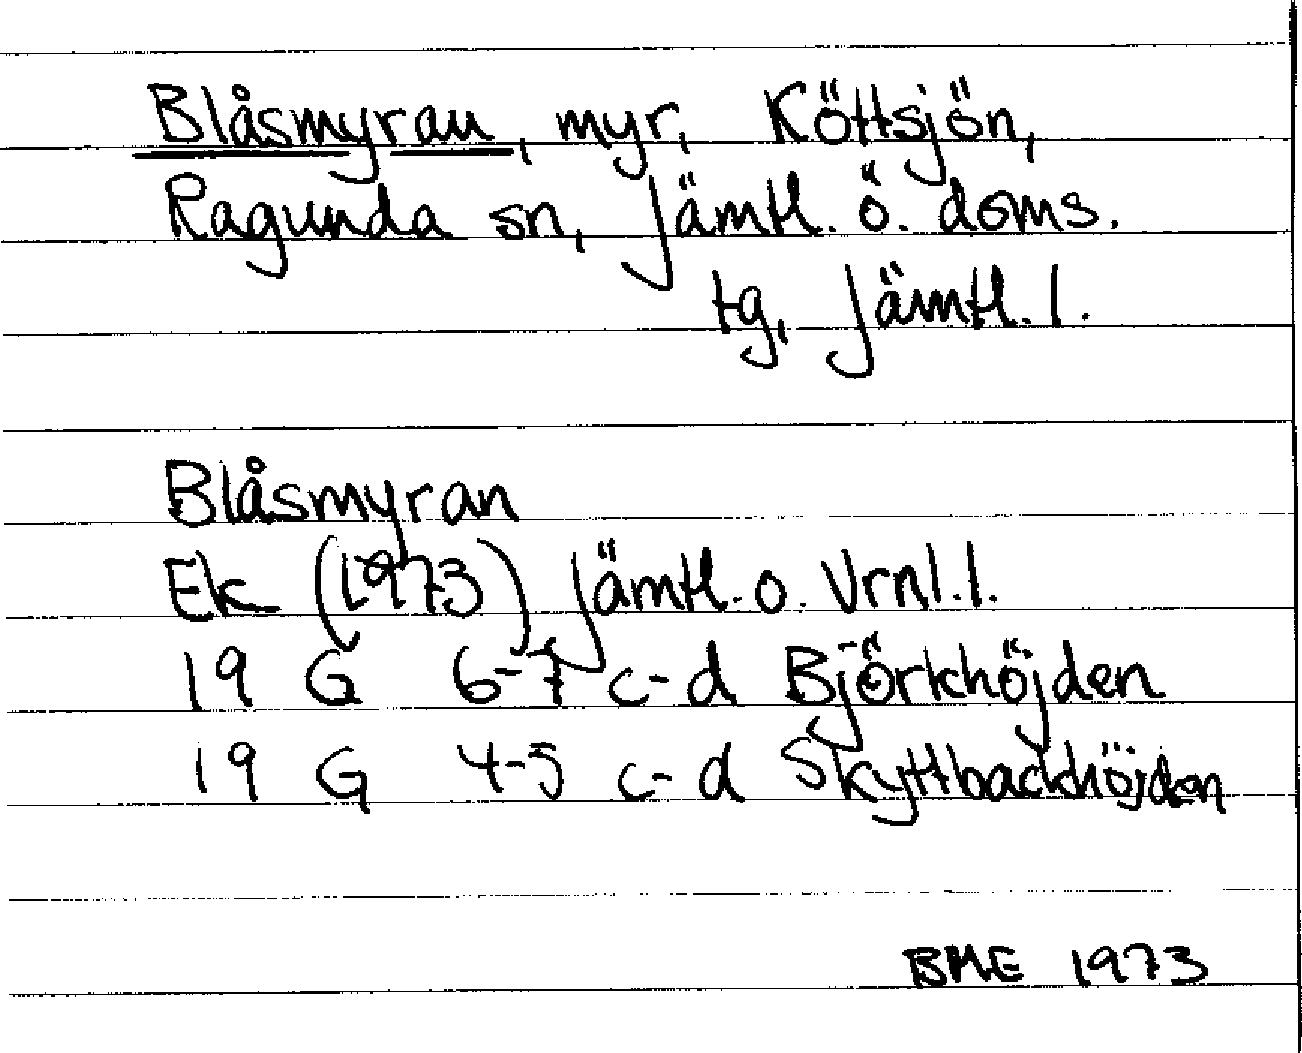 Blåsmyran, myr, Köttsjön,
Ragunda sn, Jämtl. ö. doms.
tg, Jämtl. l.
Blåsmyran
Ek (1973) Jämtl. o. Vrnl. l.
19 G 6-7 c-d Björkhöjden
19 G 4-5 c-d Skyttbackhöjden
BME 1973